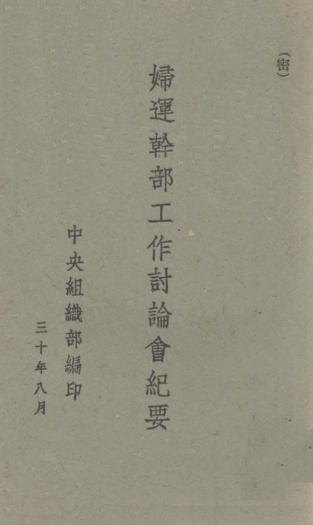 (密)
婦運幹部工作討論會紀要
中央組織部編印
三十年八月